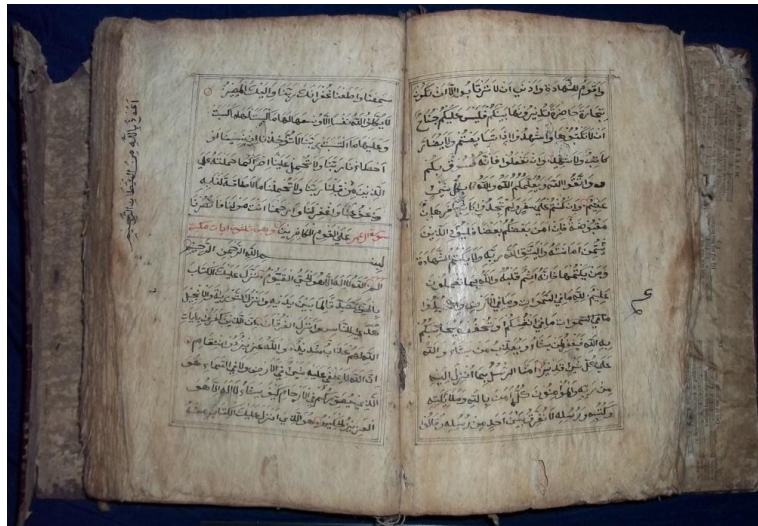 واقوم للشهادة وادنى ان لا ترتابوا الا ان تكون
تجارة حاضرة تديرونها بينكم فليس عليكم جناح
ان لا تكتبوها واشهدوا اذا تبايعتم ولا يضار
كاتب ولا شهيد وان تفعلوا فانه فسوق بكم
واتقوا الله ويعلمكم الله والله بكل شيء
عليم وان كنتم على سفر ولم تجدوا كاتبا فرهان
مقبوضة فان امن بعضكم بعضا فليؤد الذي
اؤتمن امانته وليتق الله ربه ولا تكتموا الشهادة
ومن يكتمها فانه آثم قلبه والله بما تعملون
عليم لله ما في السموات وما في الارض وان تبدوا
ما في السموات ما في انفسكم او تخفوه يحاسبكم
به الله فيغفر لمن يشاء ويعذب من يشاء والله
على كل شيء قدير امن الرسول بما انزل اليه
من ربه والمؤمنون كل امن بالله وملائكته
وكتبه ورسله لا نفرق بين احد من رسله وقالوا
سمعنا واطعنا غفرانك ربنا واليك المصير
لا يكلف الله نفسا الا وسعها لها ما كسبت
وعليها ما اكتسبت ربنا لا تؤاخذنا ان نسينا او
اخطأنا ربنا ولا تحمل علينا اصرا كما حملته على
الذين من قبلنا ربنا ولا تحملنا ما لا طاقة لنا به
واعف عنا واغفر لنا وارحمنا انت مولانا فانصرنا
على القوم الكافرين
بسم الله الرحمن الرحيم
الم الله لا اله الا هو الحي القيوم نزل عليك الكتاب
بالحق مصدقا لما بين يديه وانزل التورية والانجيل
هدى للناس وانزل الفرقان ان الذين كفروا بايات
الله لهم عذاب شديد والله عزيز ذو انتقام
ان الله لا يخفى عليه شيء في الارض ولا في السماء هو
الذي يصوركم في الارحام كيف يشاء لا اله الا هو
العزيز الحكيم هو الذي انزل عليك الكتاب منه
اعوذ بالله من الشيطان الرجيم